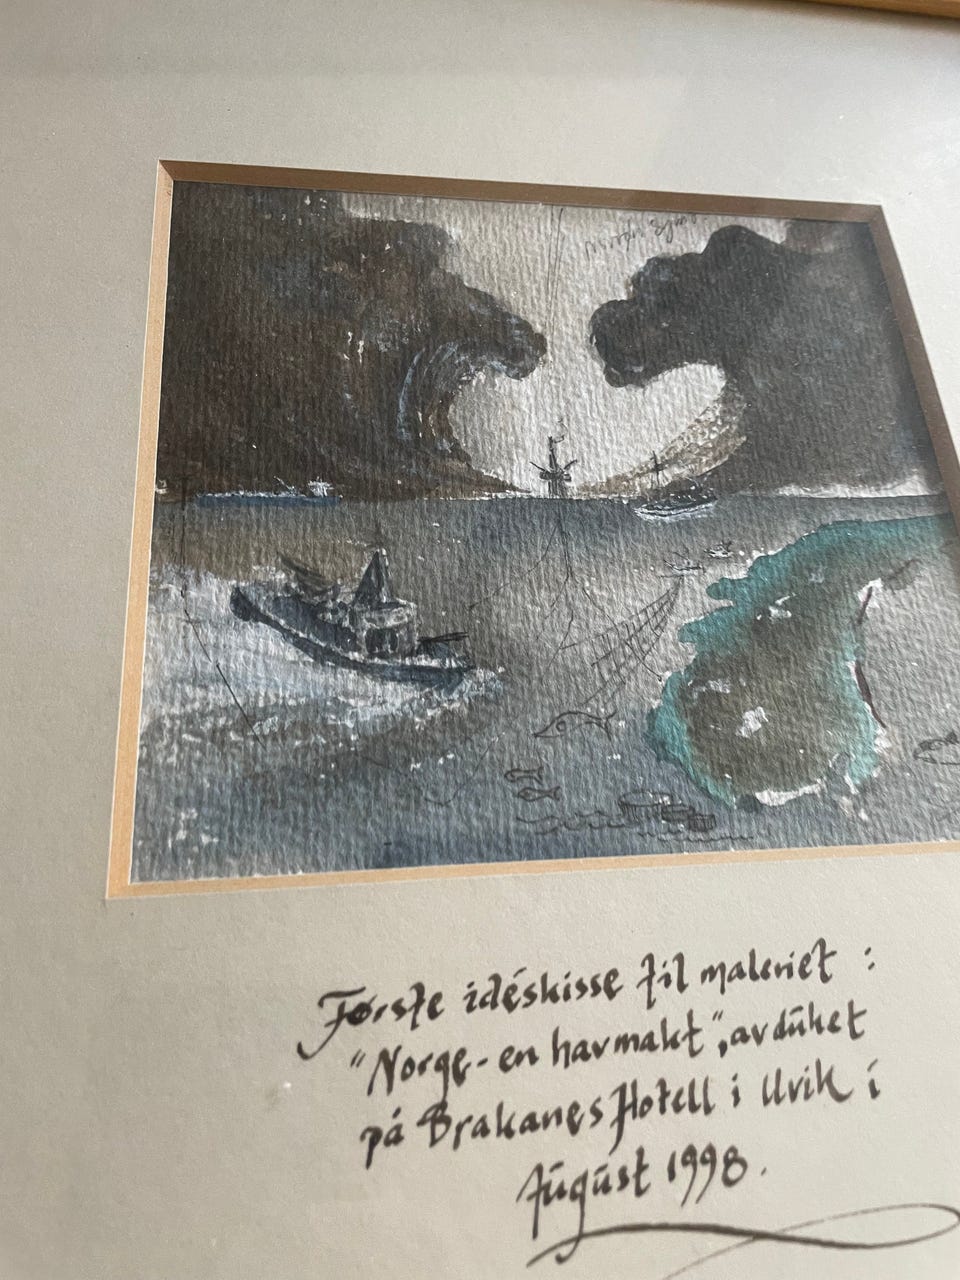 Første idéskisse til maleriet :
"Norge - en havmakt", avdūket
på Brakanes Hotell i Ulvik i
Aūgūst 1998.